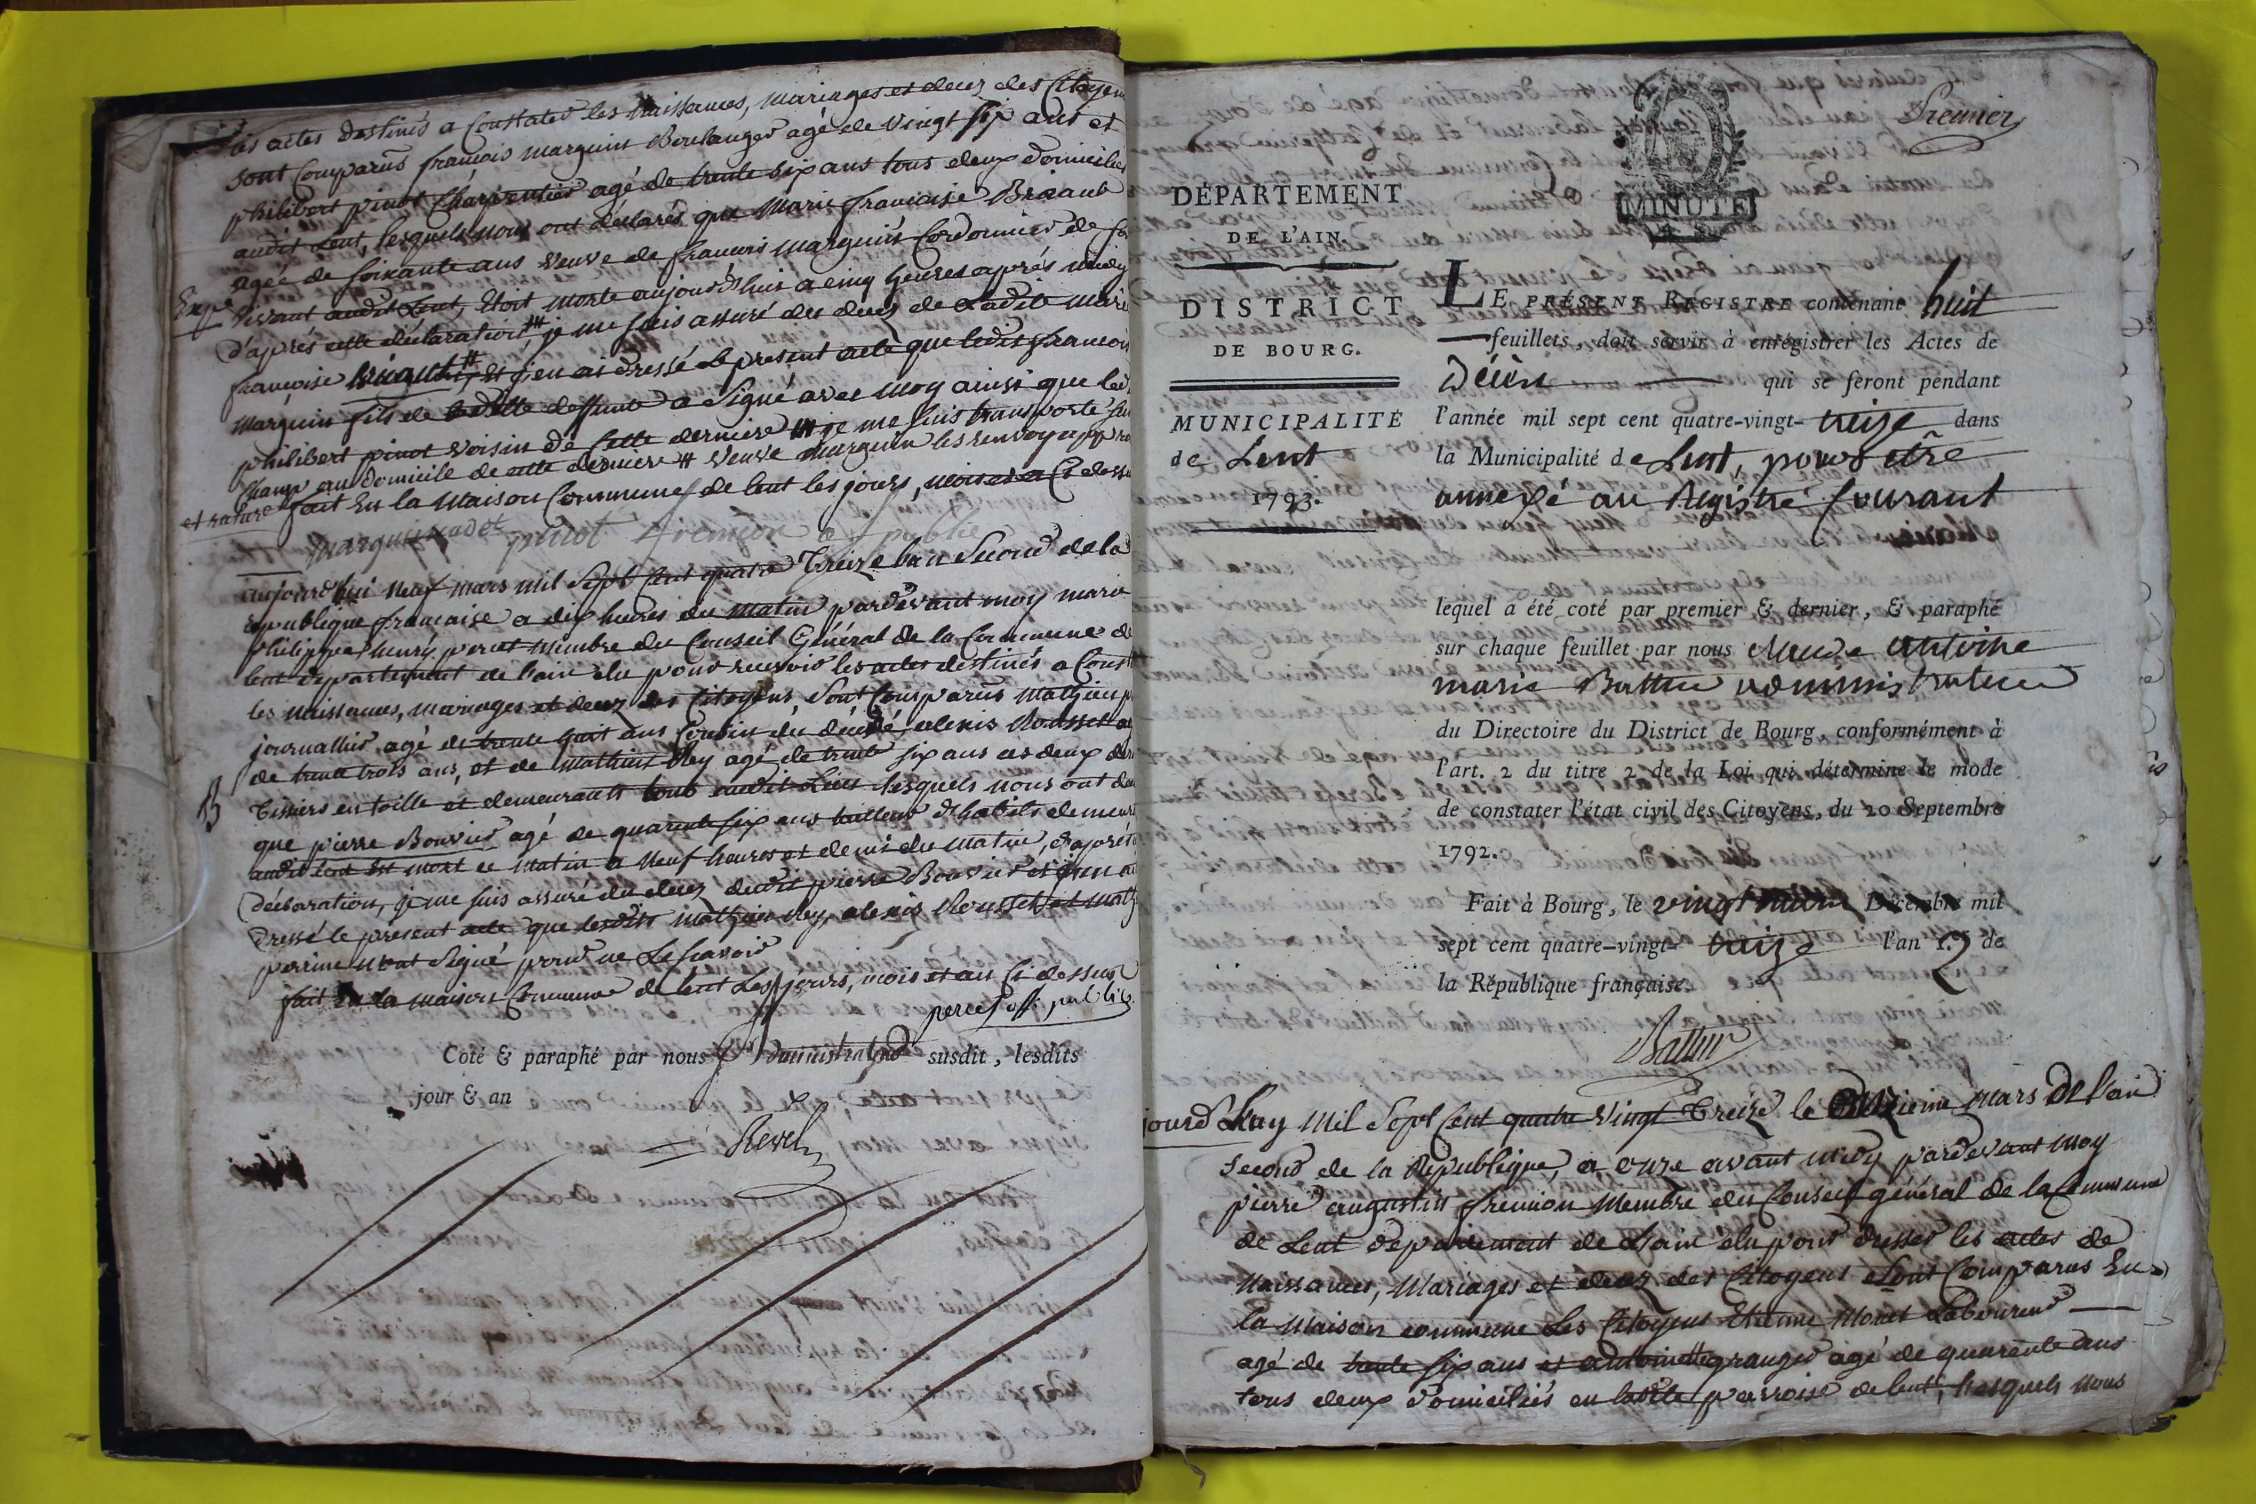 les actes destinés a Constater les naissances, mariages et decez des Citoyens
sont Comparus françois marguin Boulanger agé de vingt six ans et
philibert pinot Charpentier agé de trente six ans tous deux domiciliés
audit Lent, lesquels nous ont déclarés que Marie françoise
agée de soixante ans veuve de françois marguin Cordonnier de
vivant audit Lent, étoit morte aujourd'huit a cinq heures après midy
d'après cette déclaration, je me suis assuré du decez de Ladite Marie
françoise et j'en ai dressé Le present acte que ledit francois
marguin fils de la ditte deffunte a Signé avec moy ainsi que led
philibert pinot voisin de Cette derniere # je me suis transporté sur
Champ au domicile de cette derniere # veuve marguin les renvoy app
et rature fait En la Maison Commune de lent les jours, mois et an Ci dessu
marguin cadet pinot fremion o publie
aujourd'hui neuf mars mil Sept Cent quatre Treize l'an Second de la
republique française a dix heures du matin pardevant moy marie
philippe henry perret Membre du Conseil Général de la Commune de
lent departement de l'ain élu pour recevoir les actes destinés a Const
les naissances, mariages et decez des Citoyens, Sont Comparus mathieu
journallier agé de trente huit ans Cousin du décédé, alexis Rousset
de trente trois ans, et de Mathieu Rey agé de trente six ans ces deux der
tissiers en toille et demeurants tous audit Lieu lesquels nous ont
que pierre Bouvier agé de quarente six ans tailleur d'habits demeur
audit lent est mort ce matin a neuf heures et demi du matin, d'après
déclaration, je me suis assuré du decez dudit pierre Bouvier et j'en ai
dressé le present acte que lesdits mathieu Rey, alexis Rousset et math
perrine n'ont Signé pour ne Le scavoir
fait En la maison Commune de lent Les jours, mois et an Ci dessus
perret off. public
Coté & paraphé par nous administrateur susdit, lesdits
jour & an
Revel
Premier
MINUTE
DÉPARTEMENT
DE L'AIN.
DISTRICT
DE BOURG.
MUNICIPALITÉ
de Lent
1793.
LE PRÉSENT REGISTRE contenant huit
feuillets, doit servir à enrégistrer les Actes de
Décès qui se feront pendant
l'année mil sept cent quatre-vingt-treize dans
la Municipalité de Lent, pour être
annexé au Registre Courant
lequel a été coté par premier & dernier, & paraphé
sur chaque feuillet par nous Claude antoine
marie Buttin administrateur
du Directoire du District de Bourg, conformément à
l'art. 2 du titre 2 de la Loi qui détermine le mode
de constater l'état civil des Citoyens, du 20 Septembre
1792.
Fait à Bourg, le Décembre mil
sept cent quatre-vingt-treize l'an de
la République française.
jourd'huy Mil Sept Cent quatre Vingt Treize le mars De l'an
Second de la Republique, a onze avant midy pardevant moy
pierre augustin fremion Membre du Conseil général de la Commune
de Lent département de L'ain élu pour dresser les actes de
Naissances, Mariages et decez des Citoyens Sont Comparus En
La Maison commune Les Citoyens Etienne Moret Laboureur
agé de trente six ans et antoinette granger agé de quarente ans
tous deux domiciliés en ladite parroise de lent, Lesquels nous